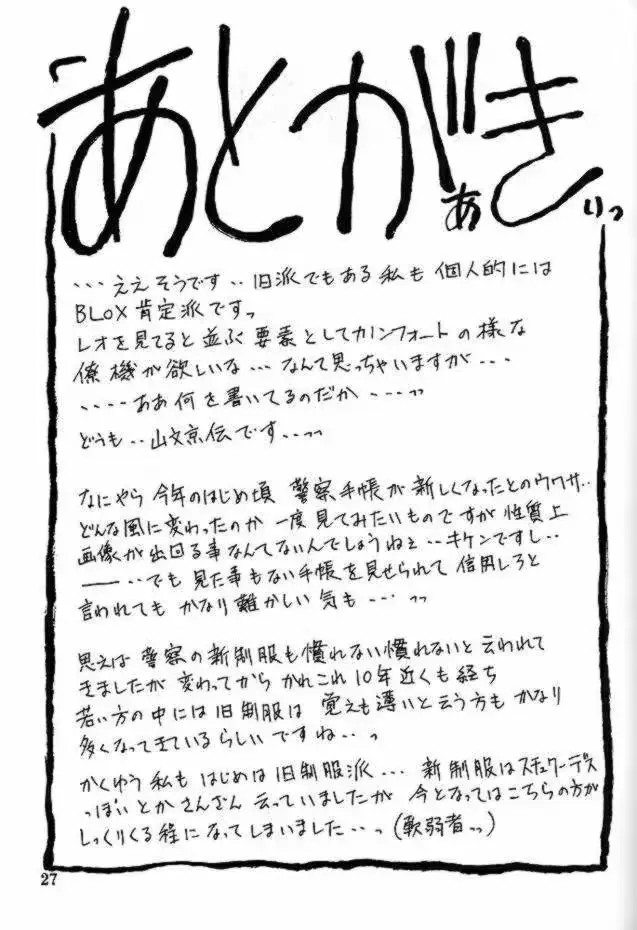 あとがき
ぁ りっ
・・・ええそうです‥旧派でもある私も個人的には
BLOX肯定派ですっ
レオを見てると並ぶ要素としてカノンフォートの様な
僚機が欲しいな…なんて思っちゃいますが・・・
・・・・ああ何を書いてるのだか・・・・っっ
どうも‥山文京伝です‥っっ
なにやら今年のはじめ頃 警察手帳が新しくなったとのウワサ‥
どんな風に変わったのか一度見てみたいものですが性質上
画像が出回る事なんてないんでしょうねぇ‥キケンですし‥
――‥でも見た事もない手帳を見せられて信用しろと
言われてもかなり難かしい気も・・・・っっ
思えば警察の新制服も慣れない慣れないと云われて
きましたが変わってからかれこれ10年近くも経ち
若い方の中には旧制服は覚えも薄いと云う方もかなり
多くなってきているらしいですね・・・っ
かくゆう私もはじめは旧制服派・・・新制服はスチュワーデス
っぽいとかさんざん云っていましたが今となってはこちらの方が
しっくりくる程になってしまいました・・・っ(軟弱者っっ)
27